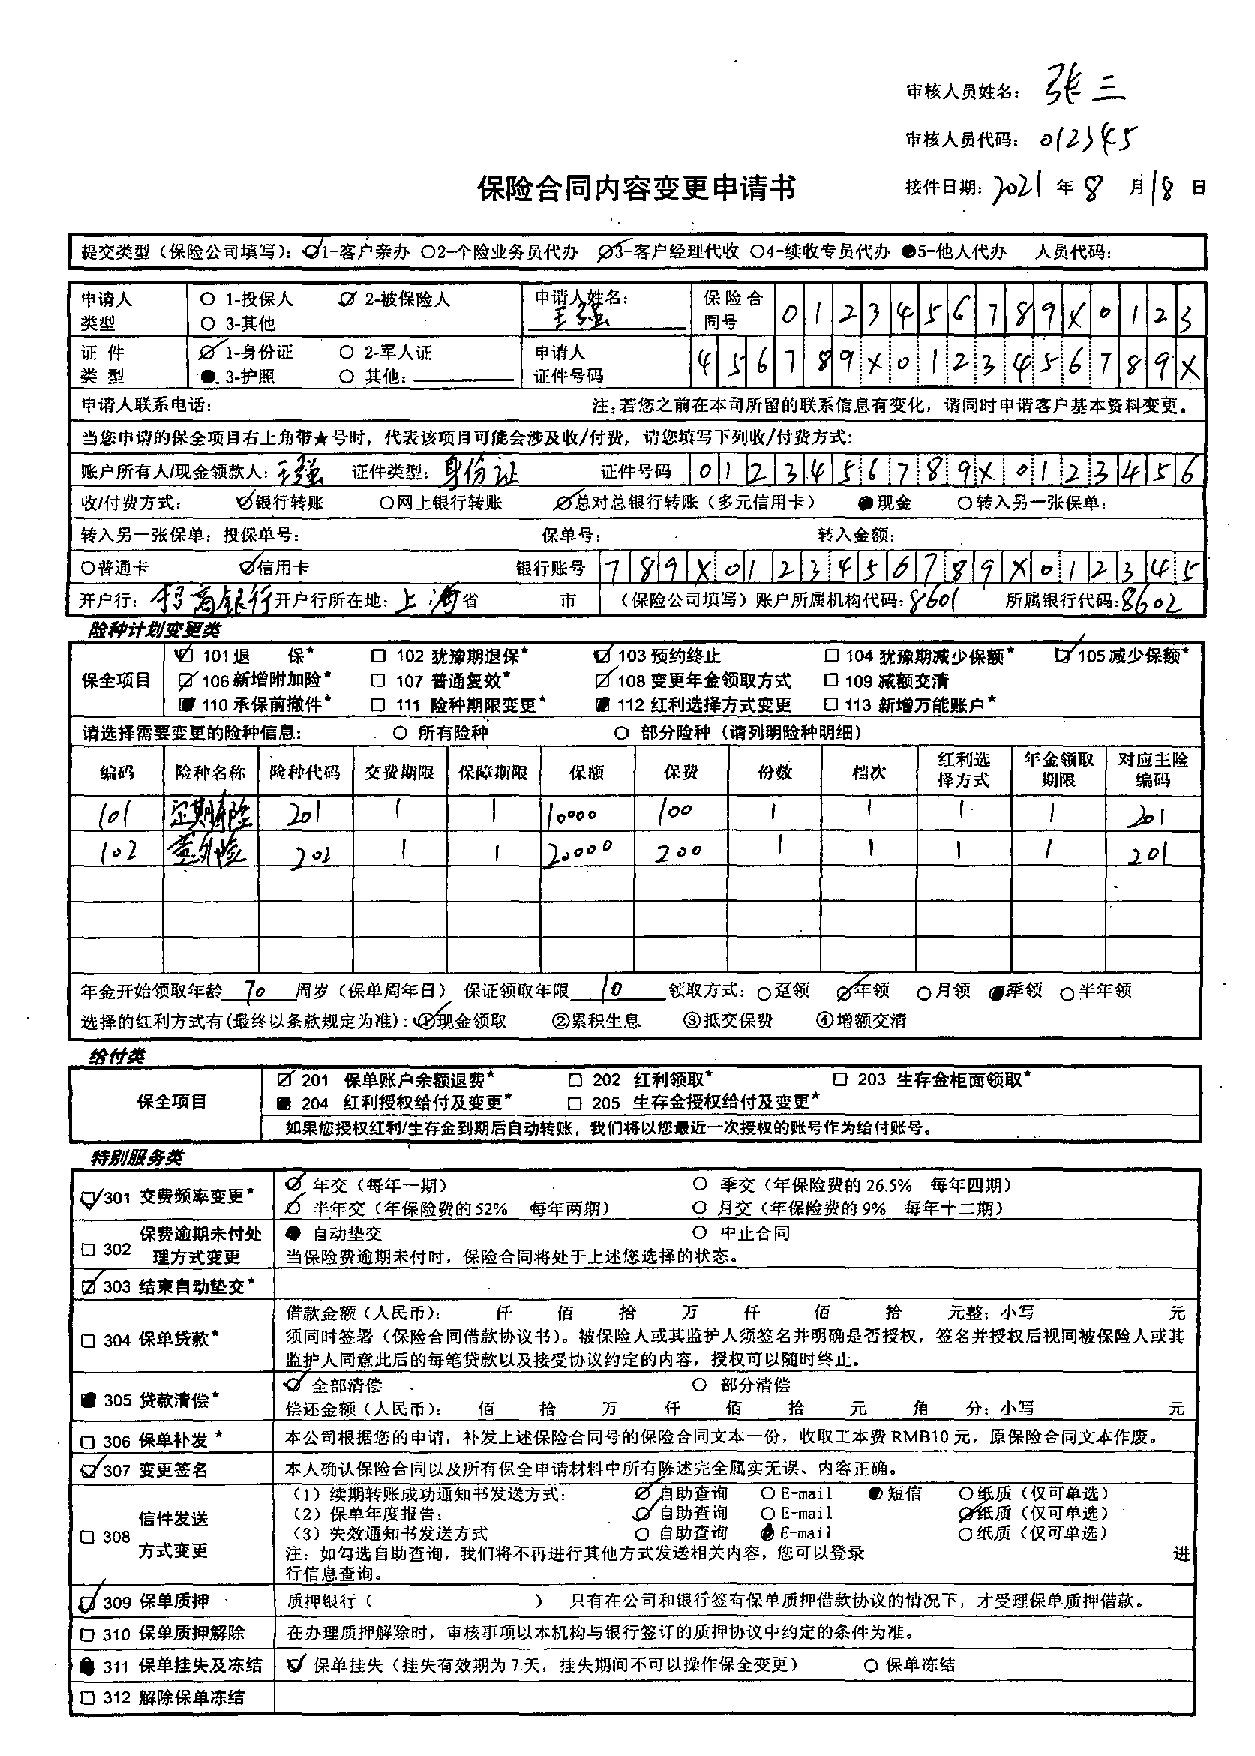 审核人员姓名: 张三
审核人员代码: 012345
保险合同内容变更申请书
接件日期: 2021 年 8 月 18 日
提交类型（保险公司填写）: 1-客户亲办 ○2-个险业务员代办 3-客户经理代收 ○4-续收专员代办 ●5-他人代办 人员代码:
申请人类型 ○ 1-投保人 2-被保险人 ○ 3-其他 申请人姓名: 王强 保险合同号 0123456789X0123
证件类型 1-身份证 ○ 2-军人证 ● 3-护照 ○ 其他: 申请人证件号码 456789X0123456789X
申请人联系电话: 注:若您之前在本司所留的联系信息有变化，请同时申请客户基本资料变更。
当您申请的保全项目右上角带★号时，代表该项目可能会涉及收/付费，请您填写下列收/付费方式:
账户所有人/现金领款人: 王强 证件类型: 身份证 证件号码 0123456789X0123456
收/付费方式: 银行转账 ○网上银行转账 总对总银行转账（多元信用卡） ●现金 ○转入另一张保单:
转入另一张保单: 投保单号: 保单号: 转入金额:
○普通卡 信用卡 银行账号 789X0123456789X012345
开户行: 招商银行 开户行所在地: 上海 省 市 （保险公司填写）账户所属机构代码: 8601 所属银行代码: 8602
险种计划变更类
保全项目
☑ 101 退 保★ □ 102 犹豫期退保★ ☑ 103 预约终止 □ 104 犹豫期减少保额★ ☑ 105 减少保额★
☑ 106 新增附加险★ □ 107 普通复效★ ☑ 108 变更年金领取方式 □ 109 减额交清
■ 110 承保前撤件★ □ 111 险种期限变更★ ■ 112 红利选择方式变更 □ 113 新增万能账户★
请选择需要变更的险种信息: ○ 所有险种 ○ 部分险种（请列明险种明细）
编码 险种名称 险种代码 交费期限 保障期限 保额 保费 份数 档次 红利选择方式 年金领取期限 对应主险编码
101 定期寿险 201 1 1 10000 100 1 1 1 1 201
102 意外险 202 1 1 20000 200 1 1 1 1 201
年金开始领取年龄 70 周岁（保单周年日） 保证领取年限 10 领取方式: ○趸领 年领 ○月领 ●季领 ○半年领
选择的红利方式有(最终以条款规定为准): ①现金领取 ②累积生息 ③抵交保费 ④增额交清
给付类
保全项目
☑ 201 保单账户余额退费★ □ 202 红利领取★ □ 203 生存金柜面领取★
■ 204 红利授权给付及变更★ □ 205 生存金授权给付及变更★
如果您授权红利/生存金到期后自动转账，我们将以您最近一次授权的账号作为给付账号。
特别服务类
☑ 301 交费频率变更★ 年交（每年一期） ○ 季交（年保险费的 26.5% 每年四期）
半年交（年保险费的 52% 每年两期） ○ 月交（年保险费的 9% 每年十二期）
□ 302 保费逾期未付处理方式变更 ● 自动垫交 ○ 中止合同
当保险费逾期未付时，保险合同将处于上述您选择的状态。
☑ 303 结束自动垫交★
□ 304 保单贷款★ 借款金额（人民币）: 仟 佰 拾 万 仟 佰 拾 元整; 小写 元
须同时签署（保险合同借款协议书）。被保险人或其监护人须签名并明确是否授权，签名并授权后视同被保险人或其
监护人同意此后的每笔贷款以及接受协议约定的内容，授权可以随时终止。
■ 305 贷款清偿★ 全部清偿 ○ 部分清偿
偿还金额（人民币）: 佰 拾 万 仟 佰 拾 元 角 分; 小写 元
□ 306 保单补发★ 本公司根据您的申请，补发上述保险合同号的保险合同文本一份，收取工本费 RMB10 元，原保险合同文本作废。
☑ 307 变更签名 本人确认保险合同以及所有保全申请材料中所有陈述完全属实无误、内容正确。
□ 308 信件发送方式变更
（1）续期转账成功通知书发送方式: 自助查询 ○E-mail ●短信 ○纸质（仅可单选）
（2）保单年度报告: 自助查询 ○E-mail 纸质（仅可单选）
（3）失效通知书发送方式 ○ 自助查询 ●E-mail ○纸质（仅可单选）
注: 如勾选自助查询，我们将不再进行其他方式发送相关内容，您可以登录 进
行信息查询。
☑ 309 保单质押 质押银行（ ） 只有在公司和银行签有保单质押借款协议的情况下，才受理保单质押借款。
□ 310 保单质押解除 在办理质押解除时，审核事项以本机构与银行签订的质押协议中约定的条件为准。
■ 311 保单挂失及冻结 保单挂失（挂失有效期为 7 天，挂失期间不可以操作保全变更） ○ 保单冻结
□ 312 解除保单冻结